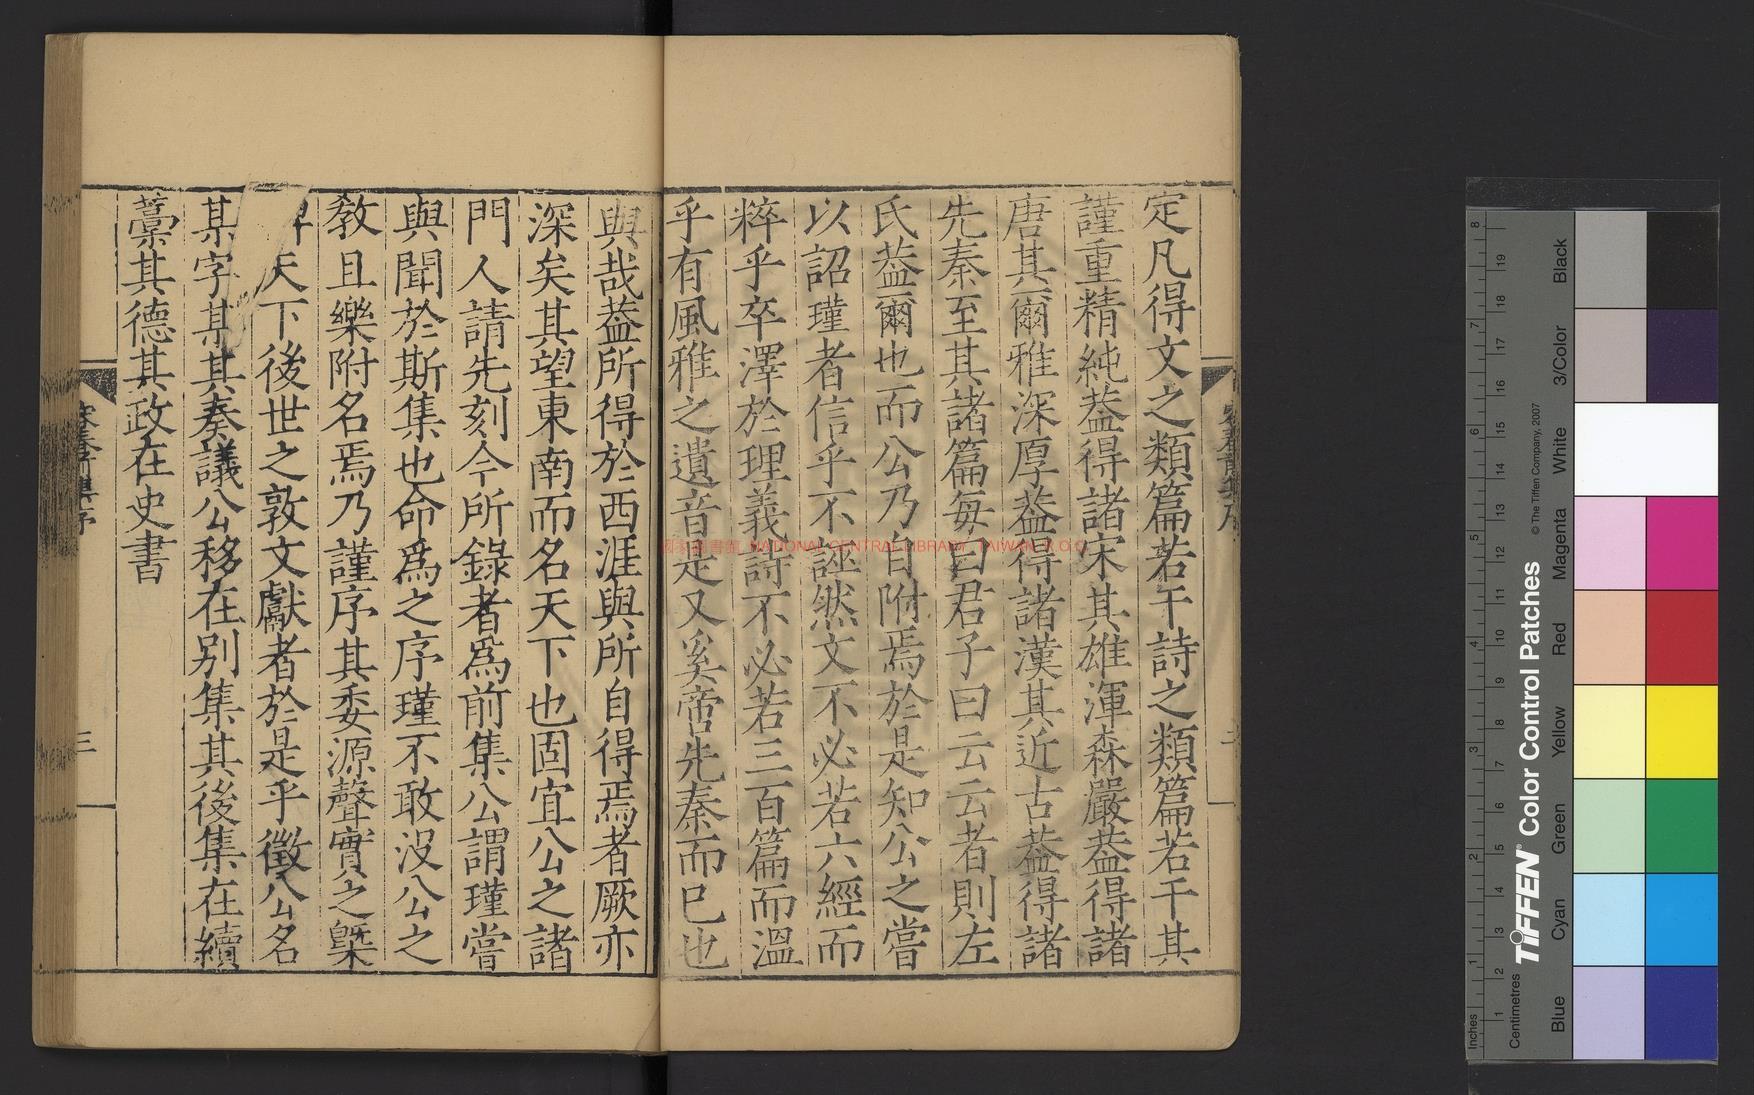 定凡得文之類篇若干詩之類篇若干其
謹重精純葢得諸宋其雄渾森嚴葢得諸
唐其爾雅深厚葢得諸漢其近古葢得諸
先秦至其諸篇每曰君子曰云云者則左
氏葢爾也而公乃自附焉於是知公之嘗
以詔瑾者信乎不誣然文不必若六經而
粹乎卒澤於理義詩不必若三百篇而溫
乎有風雅之遺音是又奚啻先秦而已也
與哉葢所得於西涯與所自得焉者厥亦
深矣其望東南而名天下也固宜公之諸
門人請先刻今所錄者為前集公謂瑾嘗
與聞於斯集也命為之序瑾不敢沒公之
敎且樂附名焉乃謹序其委源聲實之槩
天下後世之敦文獻者於是乎徵公名
某字某其奏議公移在别集其後集在續
藁其德其政在史書
三
國家圖書館 NATIONAL CENTRAL LIBRARY, TAIWAN, R.O.C.
Inches
Centimetres
TIFFEN® Color Control Patches
© The Tiffen Company, 2007
Blue
Cyan
Green
Yellow
Red
Magenta
White
3/Color
Black